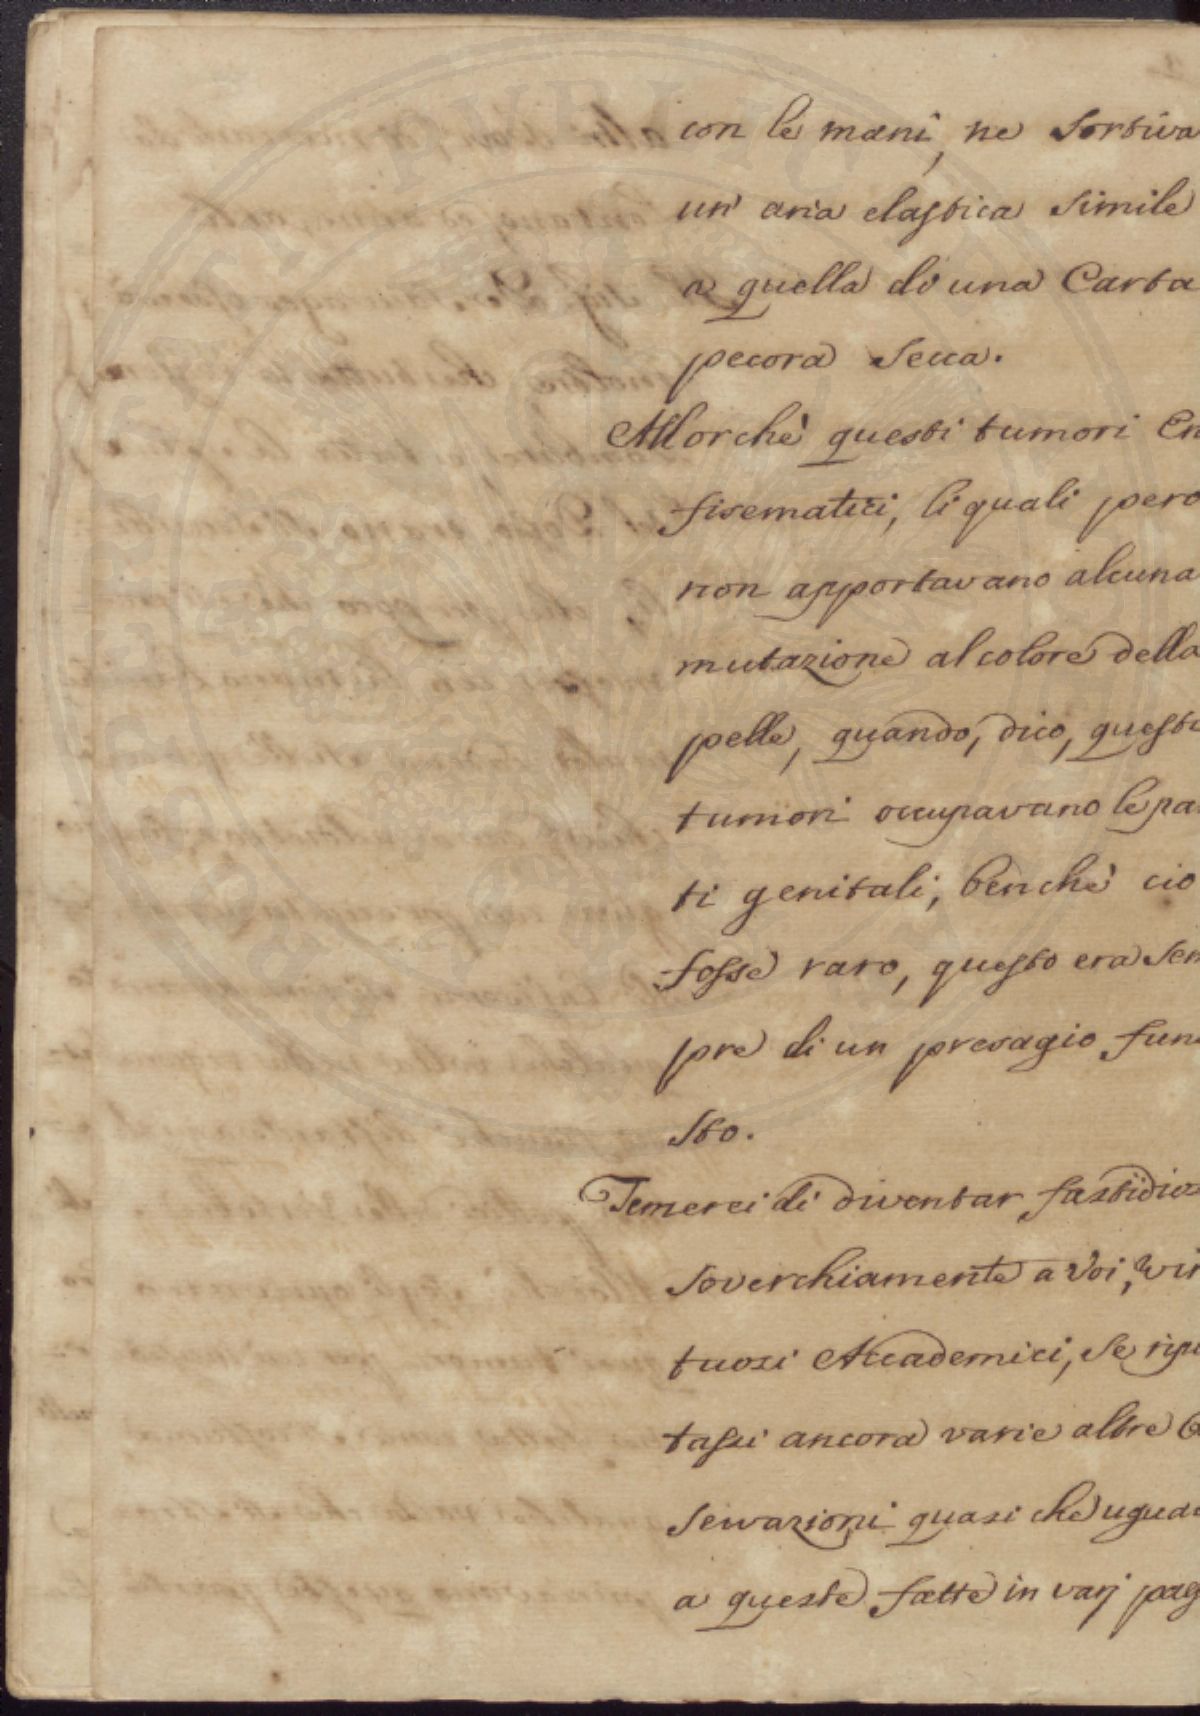 con le mani, ne sortiva
un' aria elastica simile
a quella di una Carta
pecora secca.
Allorchè questi tumori En
fisematici, li quali pero
non apportavano alcuna
mutazione al colore della
pelle, quando, dico, questi
tumori occupavano le par
ti genitali, benchè cio
fosse raro, questo era sem
pre di un presagio fune
sto.
Temerei di diventar fastidios
soverchiamente a Voi, vir
tuosi Accademici, se ripu
tassi ancora varie altre
servazioni quasi che
a queste fatte in varj